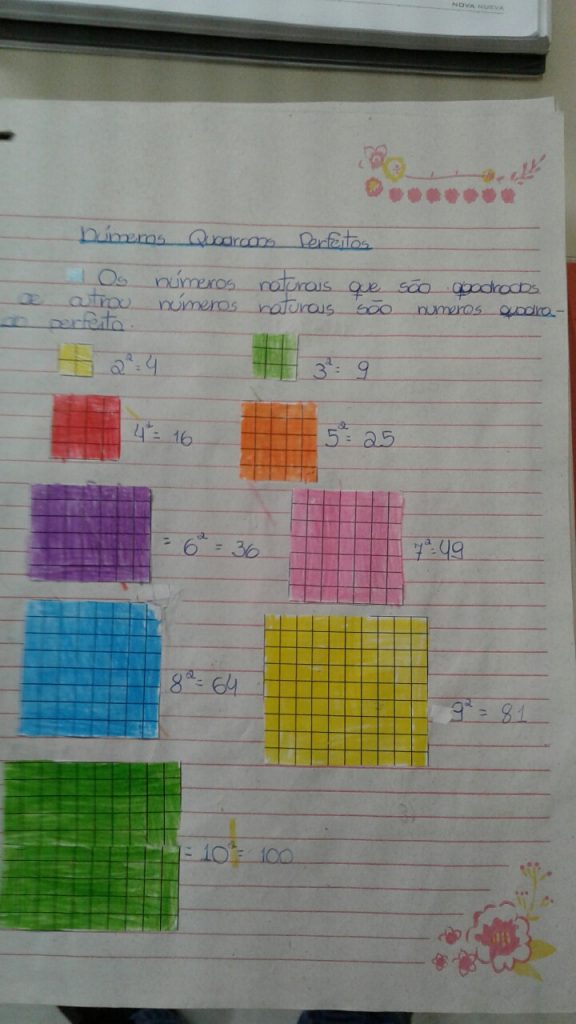 NOVA NUEVA
Números Quadrados Perfeitos
Os números naturais que são quadrados
de outrou números naturais são numeros quadra-
do perfeito.
2²=4 3²= 9
4²= 16 5²= 25
= 6² = 36 7²=49
8²= 64 9² = 81
= 10²= 100